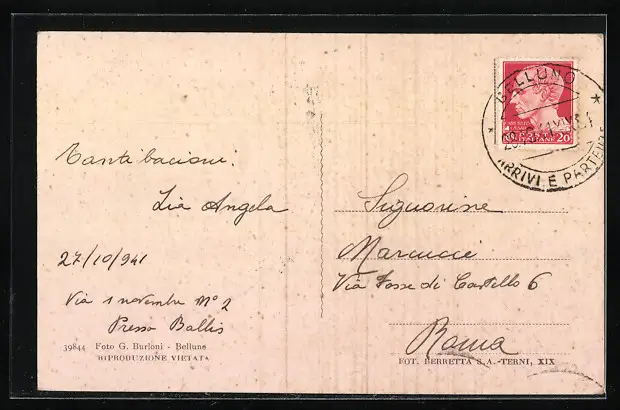 Tanti bacioni.
Zia Angela
27/10/941
Via 1 novembre Nº 2
Presso Ballis
39844 Foto G. Burloni - Belluno
RIPRODUZIONE VIETATA
BELLUNO
ARRIVI E PARTENZE
POSTE ITALIANE 20
Signorine
Marcucci
Via Fosse di Castello 6
Roma
FOT. BERRETTA S.A.-TERNI, XIX